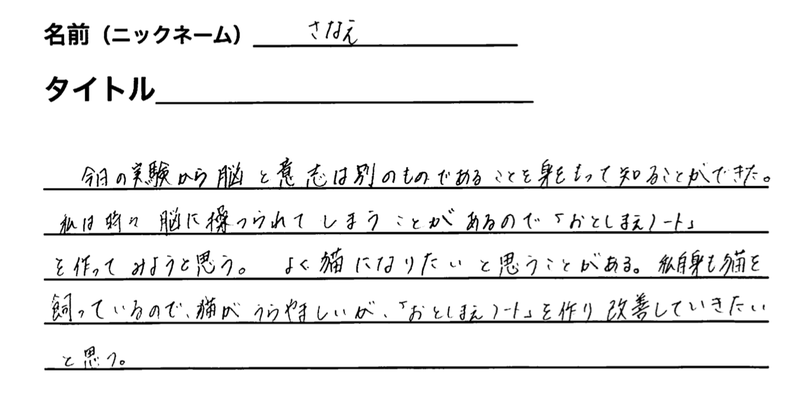 名前（ニックネーム） さなえ
タイトル
今日の実験から脳と意志は別のものであることを身をもって知ることができた。
私は時々脳に操つられてしまうことがあるので「おとしまえノート」
を作ってみようと思う。 よく猫になりたいと思うことがある。私自身も猫を
飼っているので、猫がうらやましいが、「おとしまえノート」を作り改善していきたい
と思う。